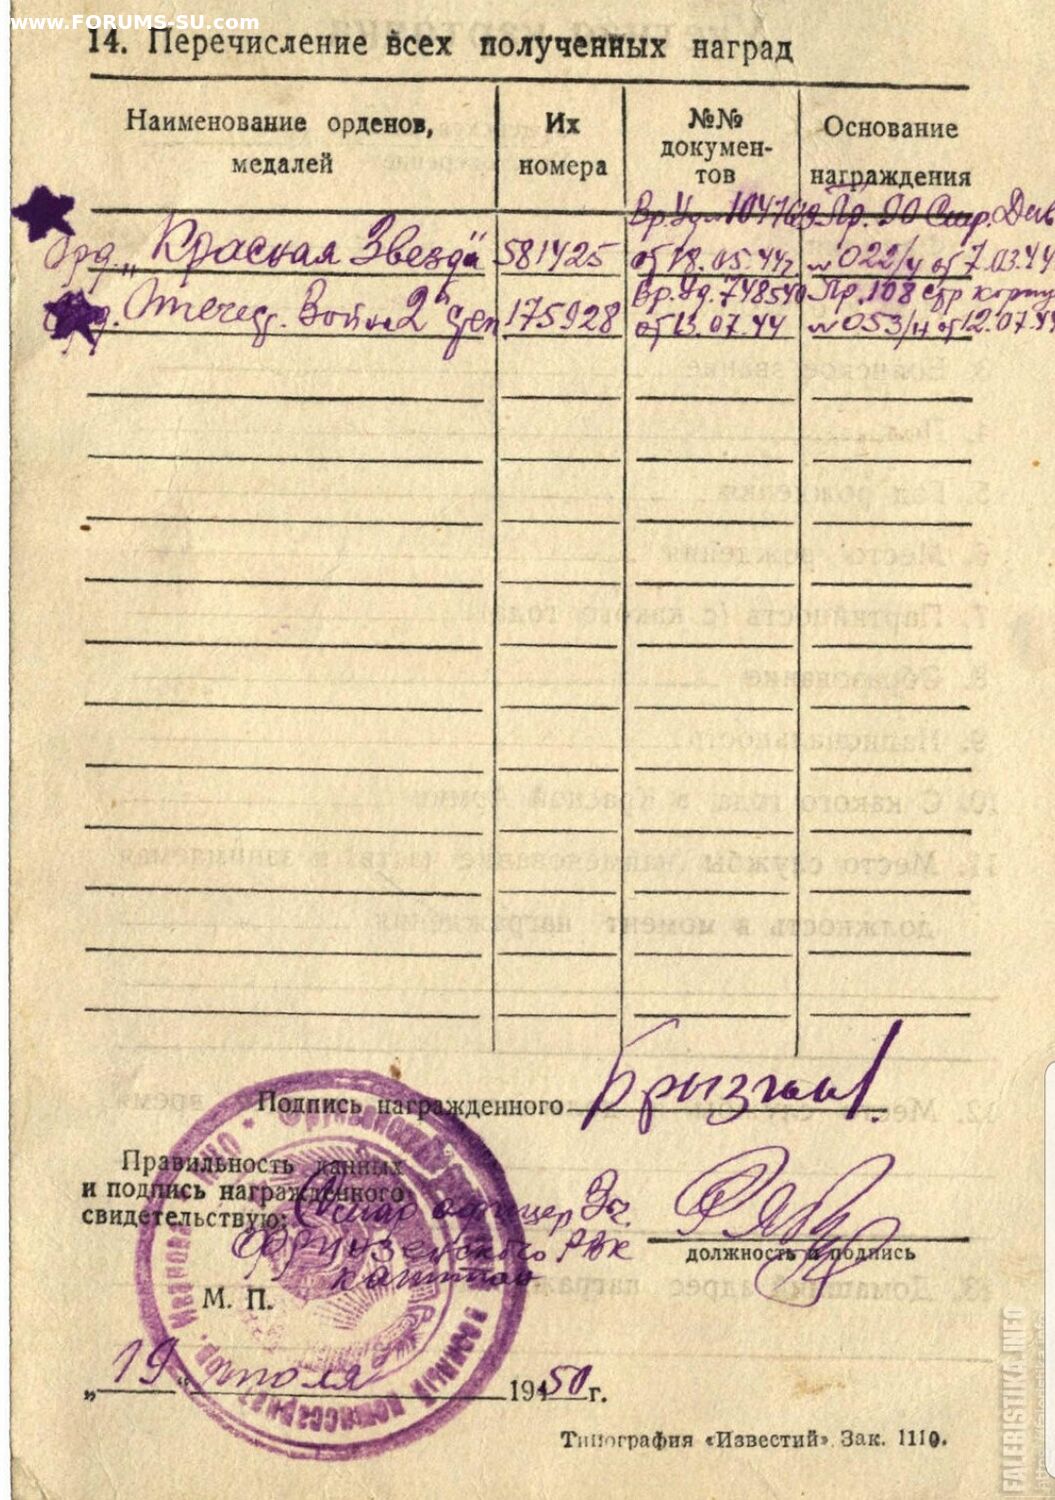 www.FORUMS-SU.com
14. Перечисление всех полученных наград
Наименование орденов,
медалей
Их
номера
№№
докумен-
тов
Основание
награждения
Вр. Уд. Пр. 90 Стр. Див
Орд. „Красная Звезда" 581425 от 18.05.44г № 022/н от 7.03.44
Вр. Уд. 748540 Пр. 108 стр корпу
Орд. Отечест. Войны 2 степ 175928 от 13.07.44 № 053/н от 12.07.44
Подпись награжденного
Правильность данных
и подпись награжденного
свидетельствую:
офицер
Фрунзенского РВК
капитан
должность и подпись
М. П.
„19“ июля 1950 г.
Типография «Известий». Зак. 1110.
FALERISTIKA.INFO